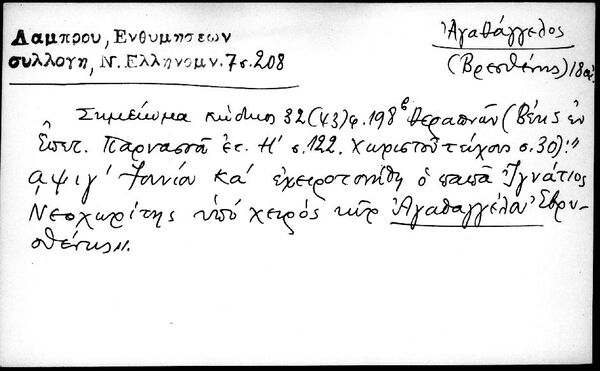 Λαμπρου, Ενθυμησεων
συλλογη, Ν. Ελληνομν. 7 σ. 208
Ἀγαθάγγελος
(Βρεσθένης) 18 αἰ.
Σημείωμα κώδικος 32 (43) φ. 198β Θεραπνῶν (Βέης ἐν
Ἐπετ. Παρνασσοῦ ἐτ. Η' σ. 122. χωριστοῦ τεύχους σ. 30): "
αψιγ' Ἰουνίου κα' ἐχειροτονήθη ὁ παπᾶ Ἰγνάτιος
Νεοχωρίτης ὑπό χειρός κὺρ Ἀγαθαγγέλου Ἐβρυ-
σθένης".